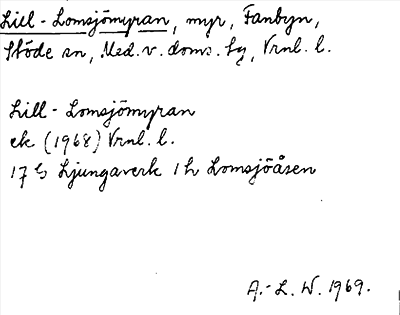 Lill-Lomsjömyran, myr, Fanbyn,
Stöde sn, Med. v. doms. tg, Vrnl. l.
Lill-Lomsjömyran
ek (1968) Vrnl. l.
17 G Ljungaverk 1 h Lomsjöåsen
A.-L. W. 1969.